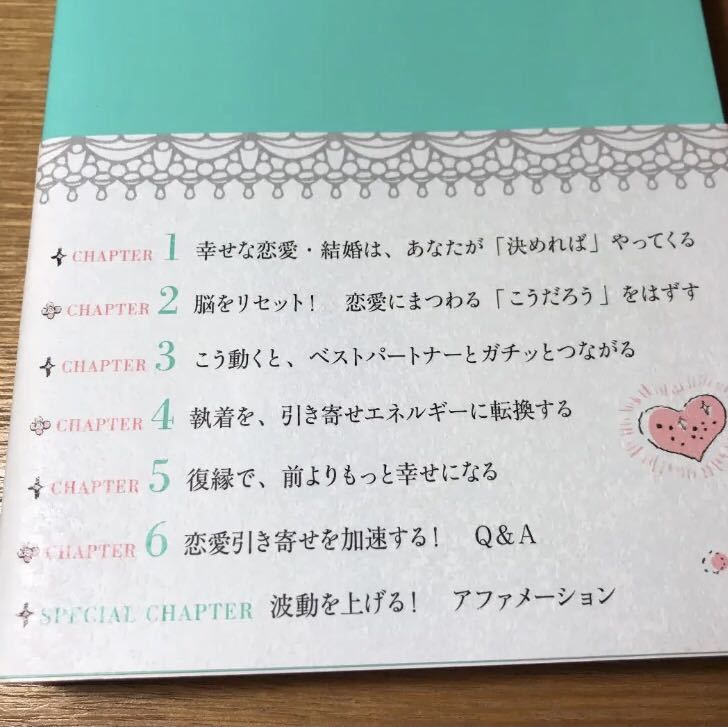 CHAPTER 1 幸せな恋愛・結婚は、あなたが「決めれば」やってくる
CHAPTER 2 脳をリセット！ 恋愛にまつわる「こうだろう」をはずす
CHAPTER 3 こう動くと、ベストパートナーとガチッとつながる
CHAPTER 4 執着を、引き寄せエネルギーに転換する
CHAPTER 5 復縁で、前よりもっと幸せになる
CHAPTER 6 恋愛引き寄せを加速する！ Q＆A
SPECIAL CHAPTER 波動を上げる！ アファメーション